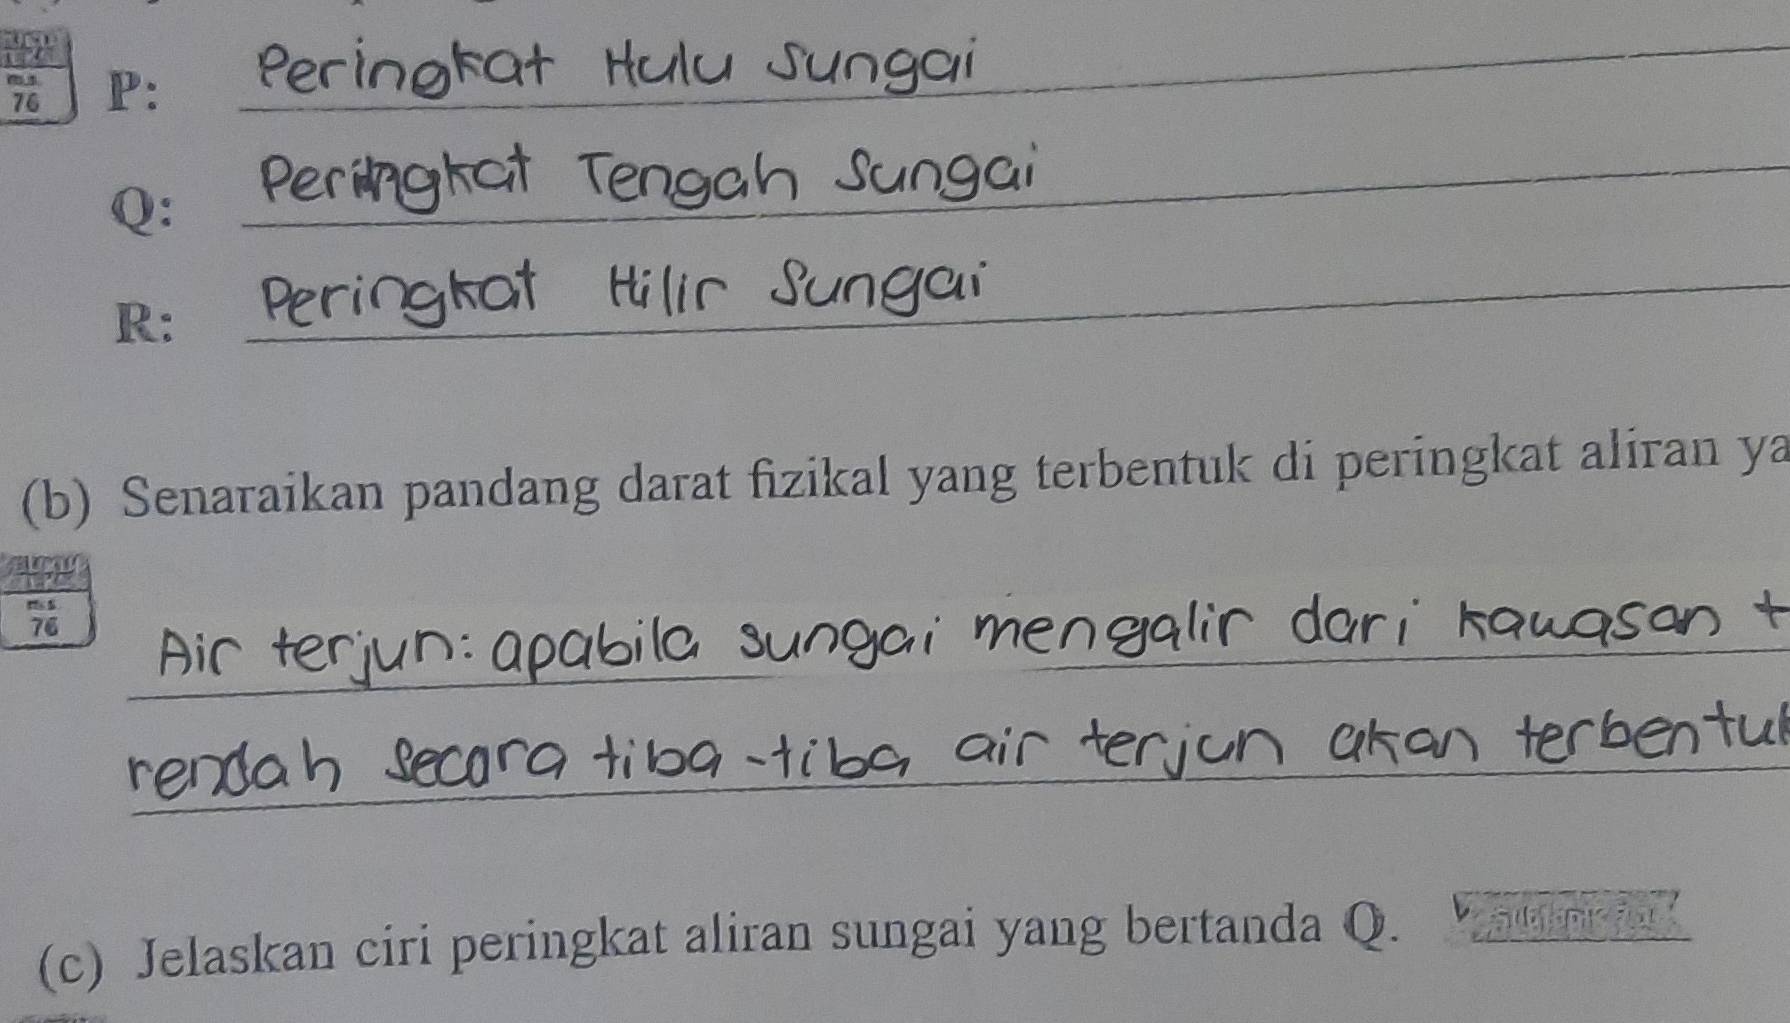 m.s.
76
P: Peringkat Hulu Sungai
Q: Peringkat Tengah Sungai
R: Peringkat Hilir Sungai
(b) Senaraikan pandang darat fizikal yang terbentuk di peringkat aliran ya
m.s.
76
Air terjun: apabila sungai mengalir dari kawasan t
rendah secara tiba-tiba air terjun akan terbentuk
(c) Jelaskan ciri peringkat aliran sungai yang bertanda Q.